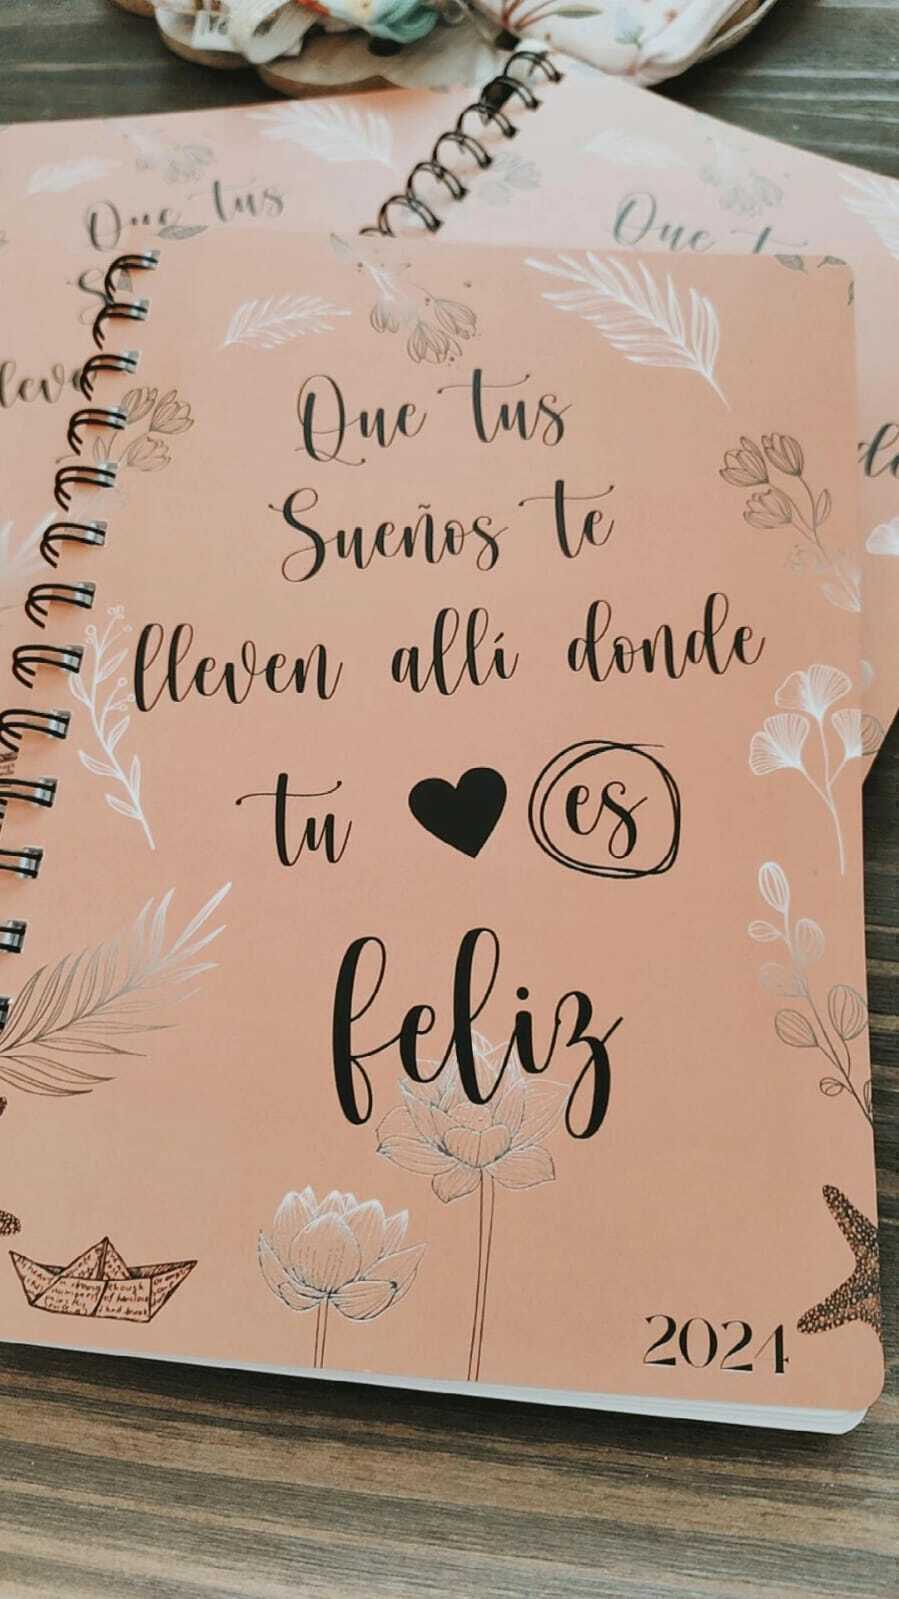 Que tus
Que t
Que tus
Sueños te
lleven allí donde
tu ♥ es
feliz
2024